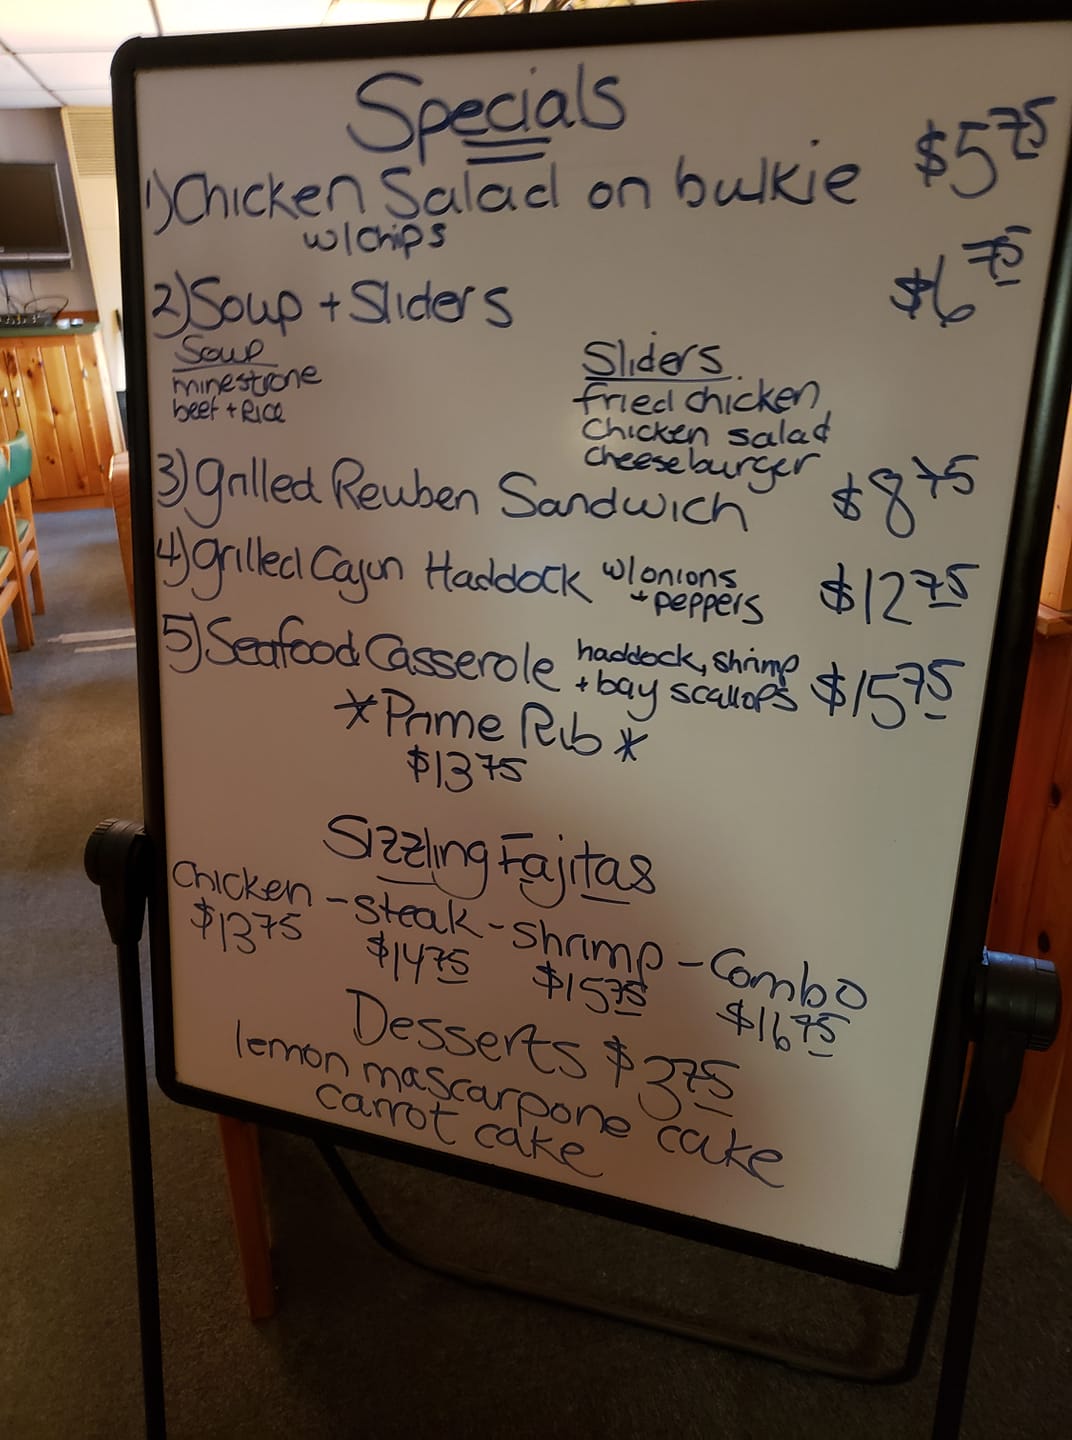 Specials
1) Chicken Salad on bulkie $5 75
w/chips
2) Soup + Sliders $6 75
Soup
minestrone
beef + Rice
Sliders
fried chicken
Chicken salad
cheeseburger
3) grilled Reuben Sandwich $8 75
4) grilled Cajun Haddock w/onions + peppers $12 75
5) Seafood Casserole haddock, shrimp + bay scallops $15 75
*Prime Rib*
$13 75
Sizzling Fajitas
Chicken - steak - shrimp - Combo
$13 75 $14 75 $15 75 $16 75
Desserts $3 75
lemon mascarpone cake
carrot cake